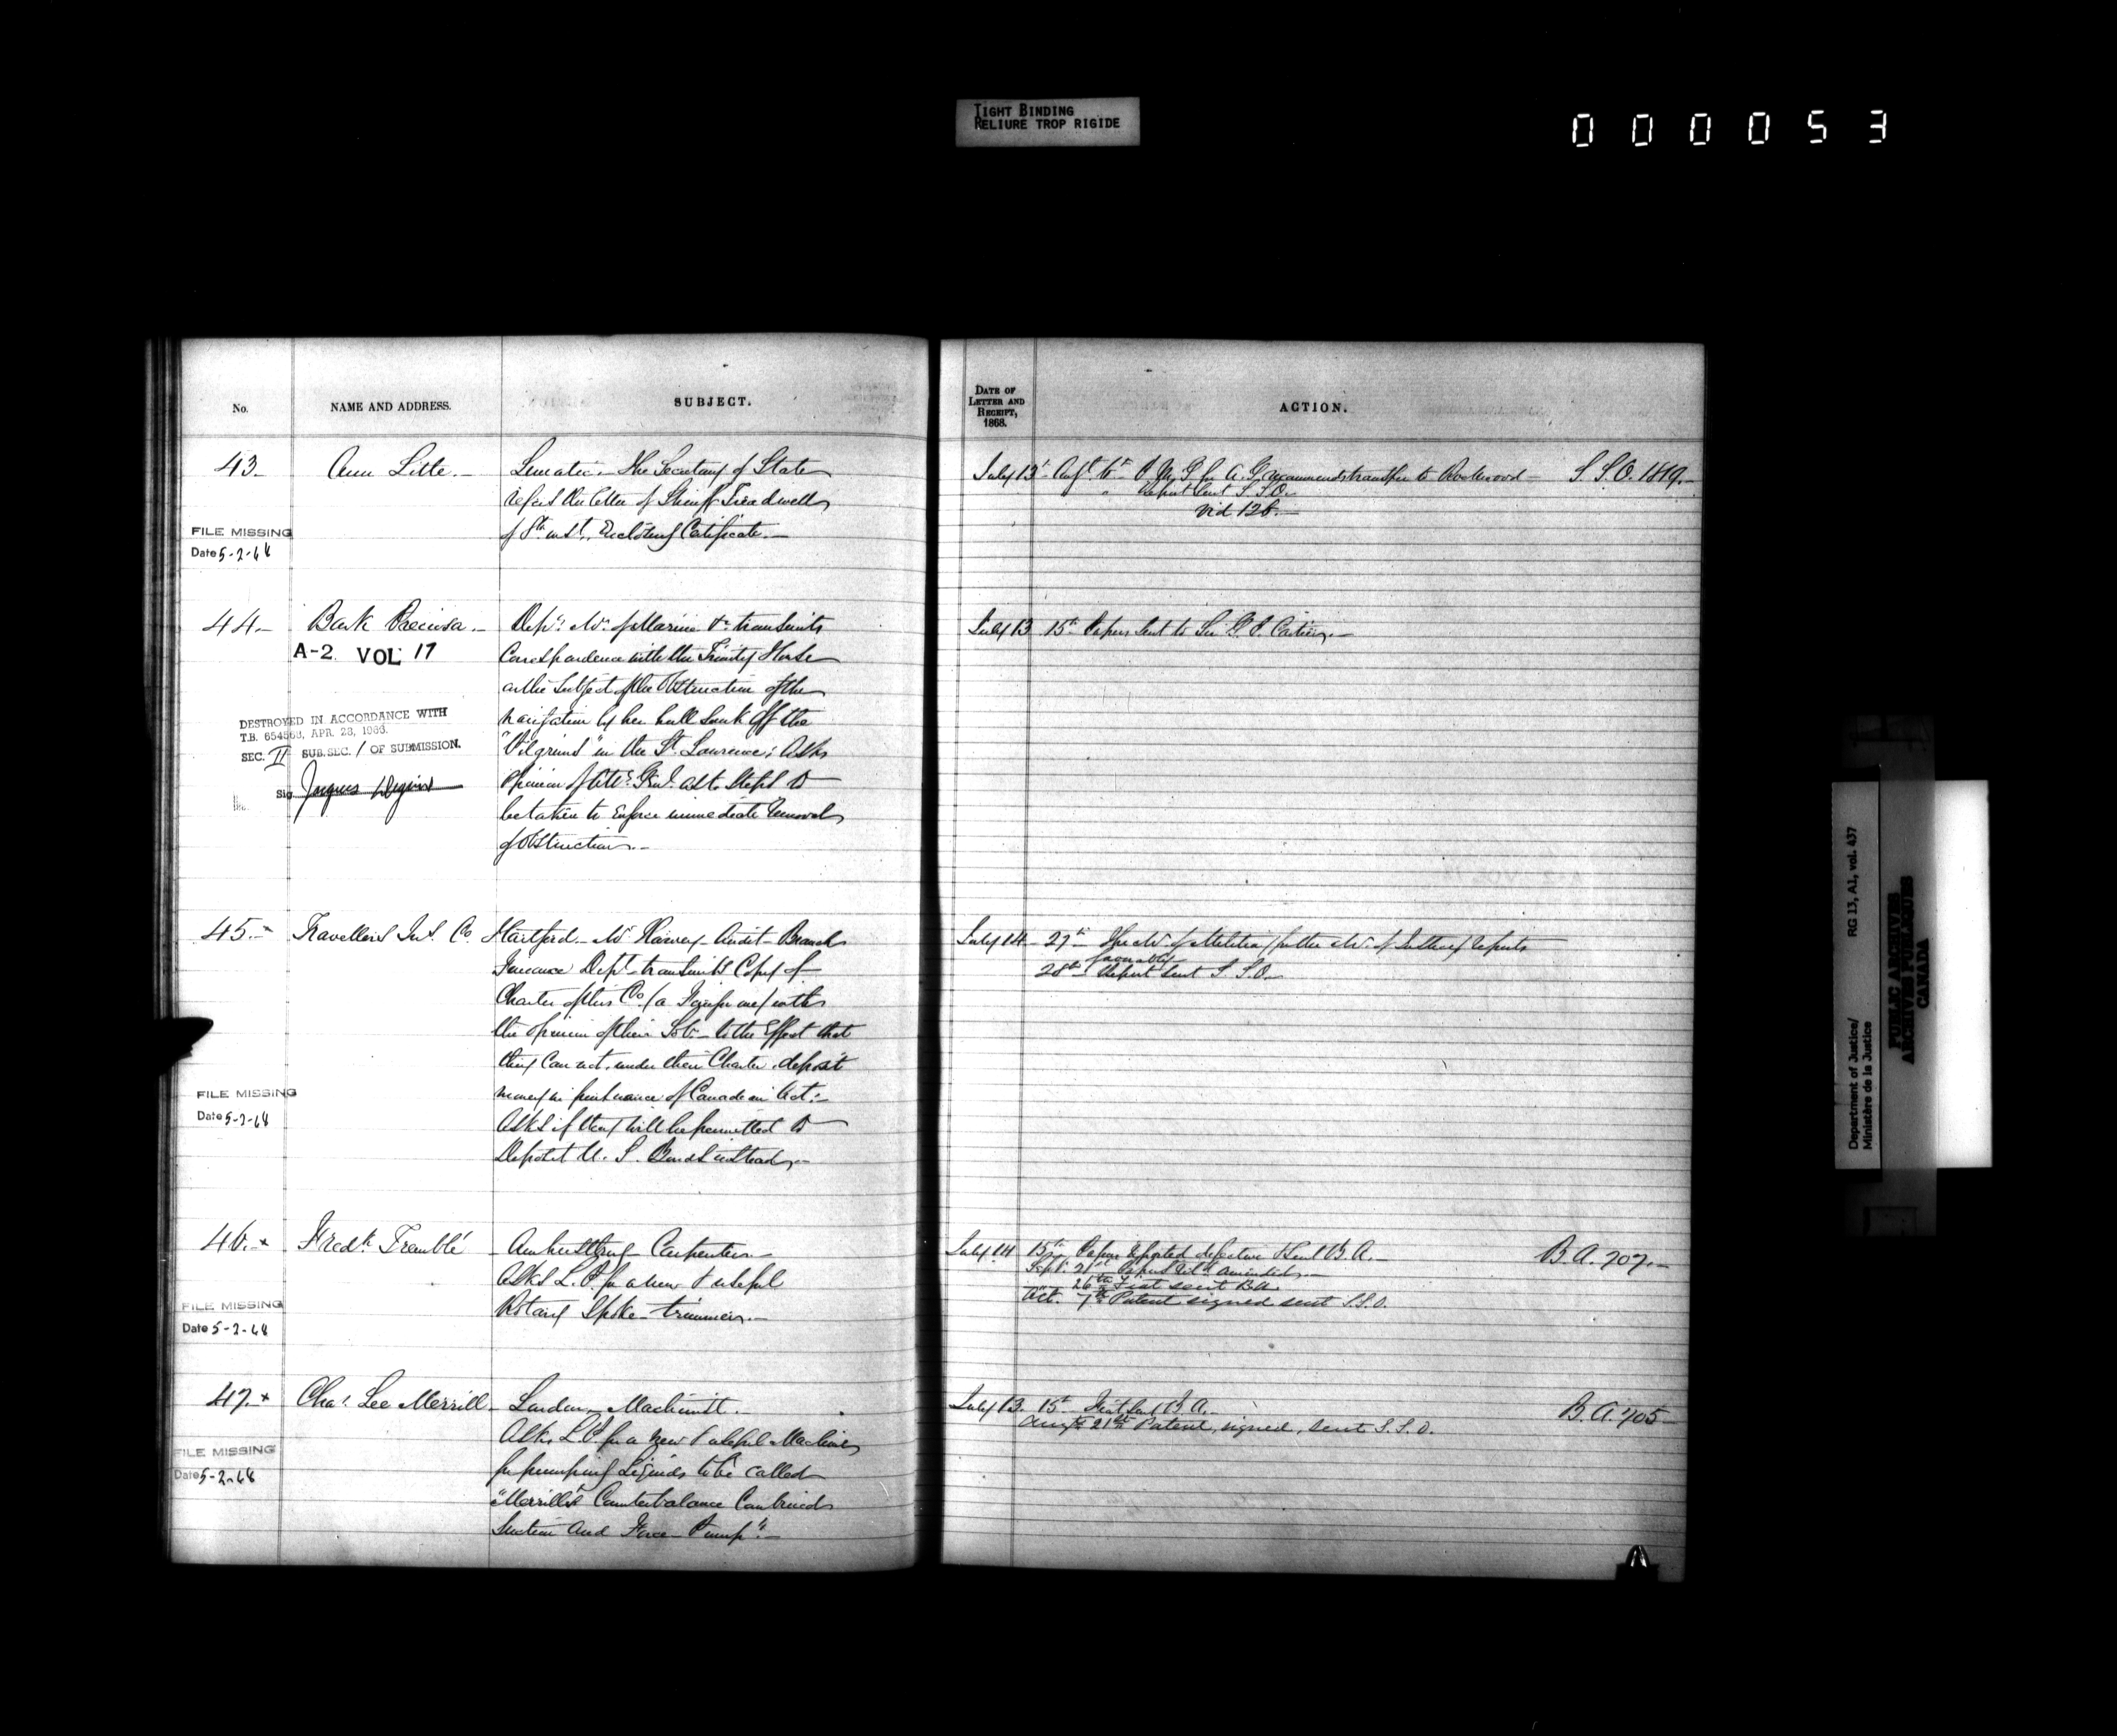 TIGHT BINDING
RELIURE TROP RIGIDE
000053
No.
NAME AND ADDRESS.
SUBJECT.
DATE OF
LETTER AND
RECEIPT,
1868.
ACTION.
43 Ann Little. Lunatic. The Secretary of State
refers the letter of Sheriff Treadwell
of 8th inst. Enclosing Certificate.
FILE MISSING
Date 5-2-68
July 13 Augt. 6th P.M.G. for A.G. recommends transfer to Rockwood S.S.O. 1819.
" Report sent S.S.O.
Vid 126.
44 Bark Preciosa.
A-2 VOL 17
DESTROYED IN ACCORDANCE WITH
T.B. 654563, APR. 28, 1966.
SEC. II SUB.SEC. 1 OF SUBMISSION.
Sig Jacques
Depy. Mr. of Marine &c. transmits
Correspondence with the Trinity House
on the subject of the Obstruction of the
navigation by her hull sunk off the
"Pilgrims" in the St. Lawrence; Asks
Opinion of Atty. Genl. as to steps to
be taken to Enforce immediate removal
of Obstruction.
July 13 15th Papers sent to Sir G. E. Cartier.
45. Travellers Ins. Co. Hartford. Mr. Harvey Audit Branch
Finance Dept. transmits Copy of
Charter of this Co. (a Foreign one) with
the opinion of their Sol. to the Effect that
they can not, under their Charter, deposit
money in pursuance of Canadian Act:
Asks if they will be permitted to
Deposit U. S. Bonds instead.
FILE MISSING
Date 5-2-68
July 14 27th The Mr. of Militia for the Mr. of Justice reports
favorably
28th Report sent S.S.O.
46. x Fredk. Tremblé Amherstburg Carpenter.
Asks L. P. for a new & useful
Rotary Spoke trimmer.
FILE MISSING
Date 5-2-68
July 14 15th Papers reported defective & sent B.A. B.A. 707.
Sept. 21st Papers retd. amended.
26th Fiat sent B.A.
Oct. 7th Patent signed sent S.S.O.
47. x Chas. Lee Merrill London, Machinist.
Asks L.P. for a new & useful Machine
for pumping Liquids to be called
"Merrill's Counterbalance Combined
Suction and Force Pump".
FILE MISSING
Date 5-2-68
July 13. 15th Fiat sent B.A. B.A. 705
Augt. 21st Patent, signed, sent S.S.O.
RG 13, A1, vol. 437
Department of Justice/
Ministère de la Justice
PUBLIC ARCHIVES
ARCHIVES PUBLIQUES
CANADA